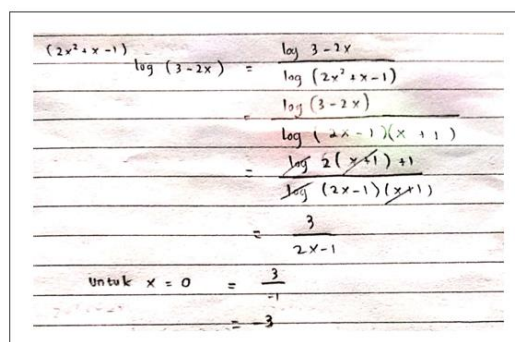 (2x² + x - 1) log (3 - 2x) = log 3 - 2x / log (2x² + x - 1)
= log (3 - 2x) / log (2x - 1)(x + 1)
= log 2(x+1) + 1 / log (2x - 1)(x+1)
= 3 / 2x - 1
untuk x = 0 = 3 / -1
= -3